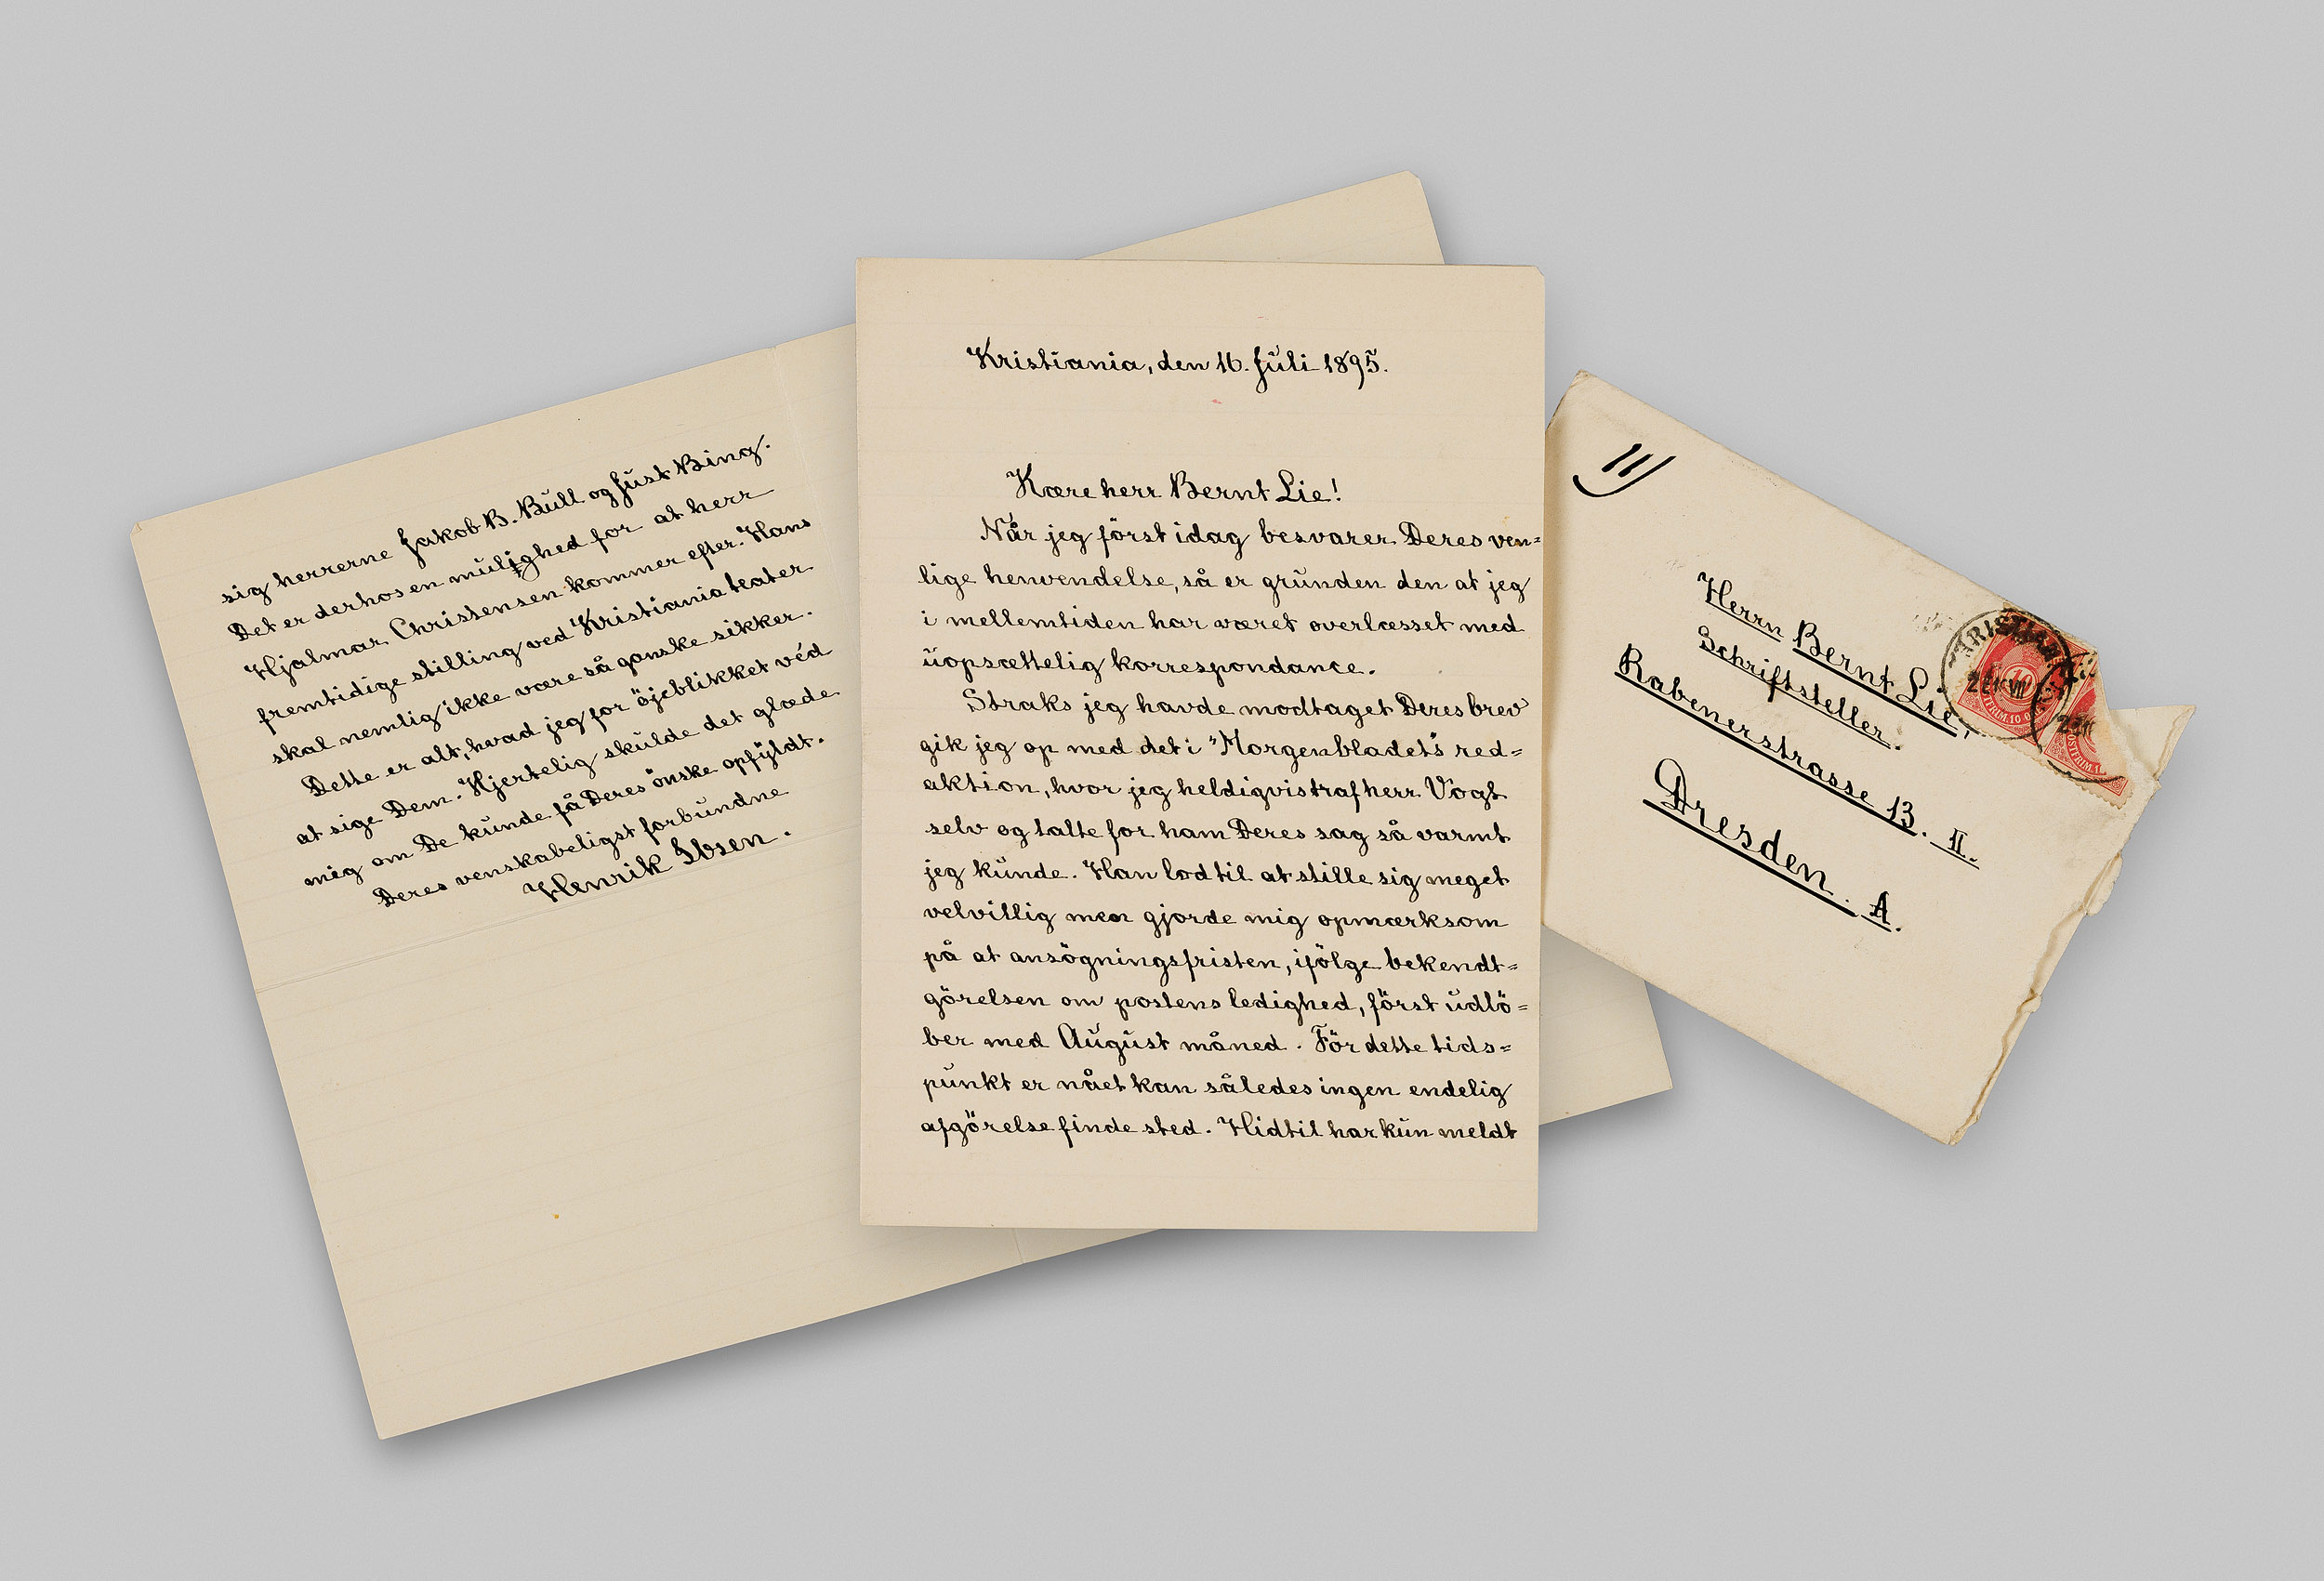 Kristiania, den 16. Júli 1895.
Kære herr Bernt Lie!
Når jeg först idag besvarer Deres ven=
lige henvendelse, så er grúnden den at jeg
i mellemtiden har været overlæsset med
úopsættelig korrespondance.
Straks jeg havde modtaget Deres brev
gik jeg op med det i "Morgenbladet"s red=
aktion, hvor jeg heldigvis traf herr Vogt
selv og talte for ham Deres sag så varmt
jeg kúnde. Han lod til at stille sig meget
velvillig men gjorde mig opmærksom
på at ansögningsfristen, ifölge bekendt=
görelsen om postens ledighed, först údlö=
ber med Aúgúst måned. För dette tids=
púnkt er nået kan således ingen endelig
afgörelse finde sted. Hidtil har kún meldt
sig herrerne Jakob B. Búll og Júst Bing.
Det er derhos en múlighed for at herr
Hjalmar Christensen kommer efter. Hans
fremtidige stilling ved Kristiania teater
skal nemlig ikke være så ganske sikker.
Dette er alt, hvad jeg for öjeblikket véd
at sige Dem. Hjertelig skúlde det glæde
mig om De kúnde få Deres önske opfyldt.
Deres venskabeligst forbúndne
Henrik Ibsen.
11)
Herrn Bernt Lie,
Schriftsteller.
Rabenerstrasse 13. II.
Dresden. A.